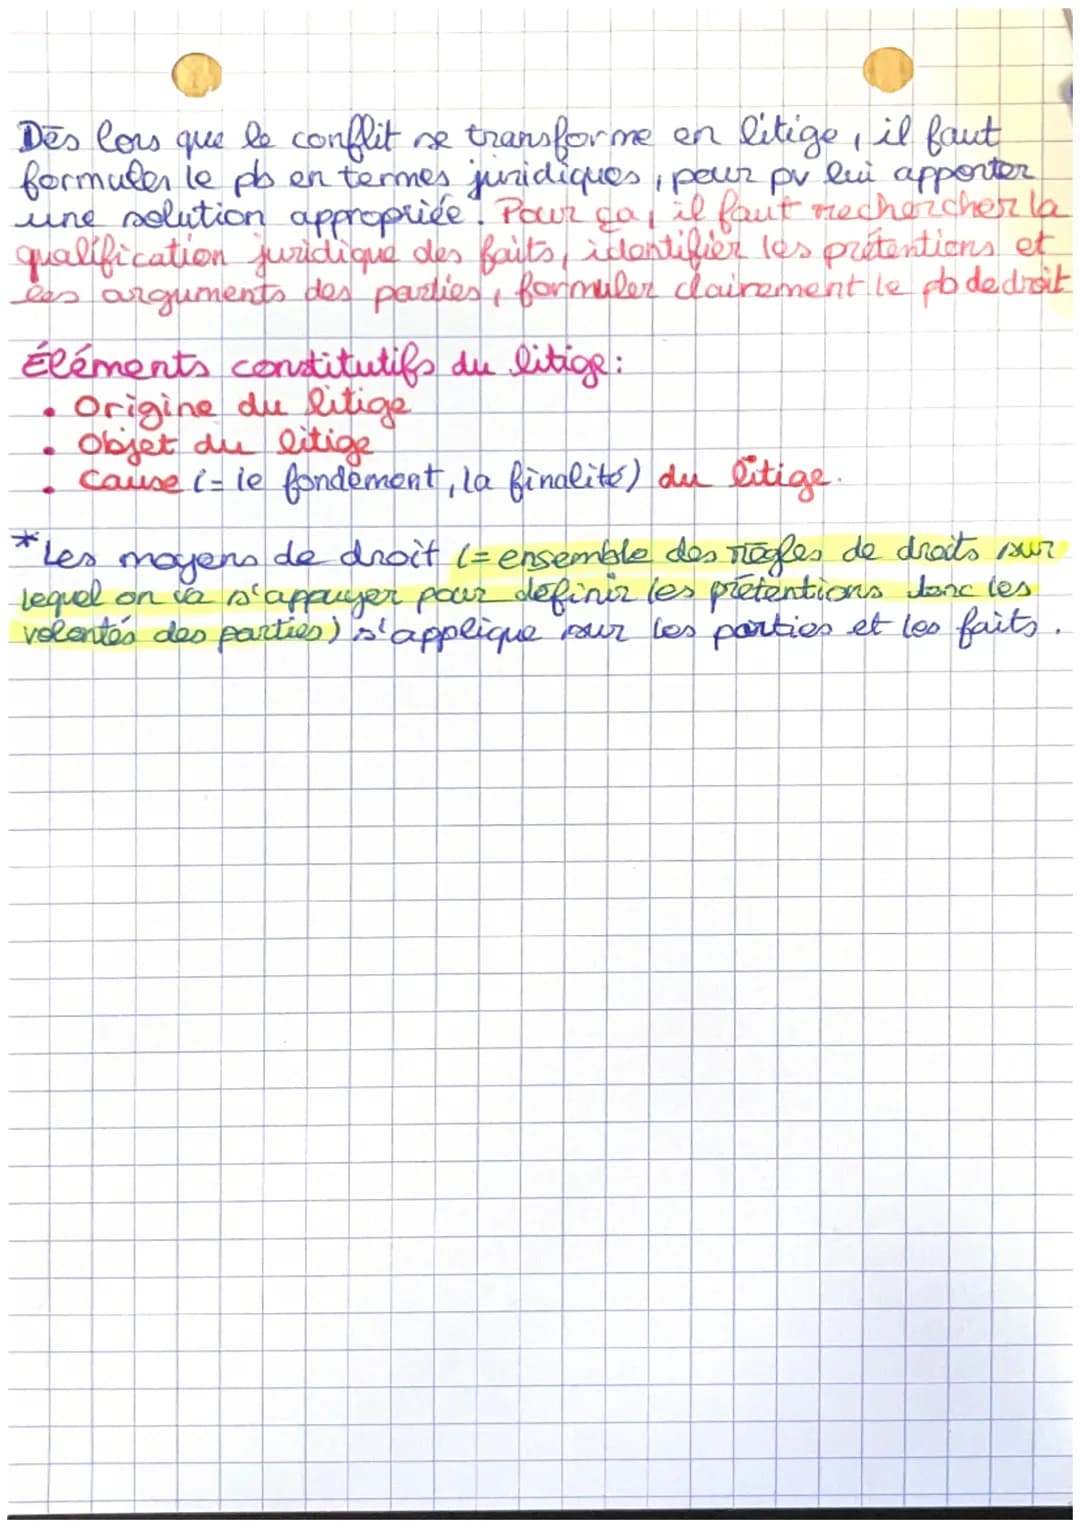 Dès lors que le conflit se transforme en litige, il faut
formuler le pb en termes juridiques, pour pv lui apporter
une solution appropriée. Pour ça, il faut rechercher la
qualification juridique des faits, identifier les prétentions et
les arguments des parties, formuler clairement le pb de droit
Éléments constitutifs du litige :
• Origine du litige
• Objet du litige
• Cause (= le fondement, la finalité) du litige.
*Les moyens de droit (= ensemble des règles de droits sur
lequel on va s'appuyer pour définir les prétentions donc les
volontés des parties) s'applique sur les parties et les faits.